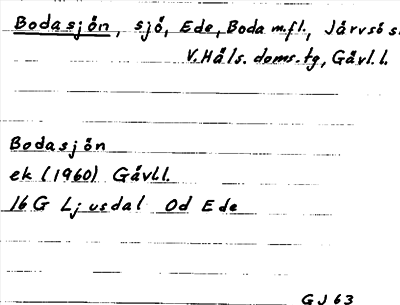 Bodasjön, sjö, Ede, Boda m.fl., Järvsö s
V. Häls. doms.tg, Gävl.l.
Bodasjön
ek (1960) Gävll.
16G Ljusdal Od Ede
GJ 63